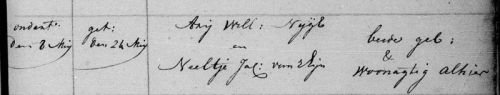 ondert: get: Arij Will: Nijgh beide geb:
den 8 Mij den 24 Mij en &
Neeltje Jac: van Rijn woonagtig alhier